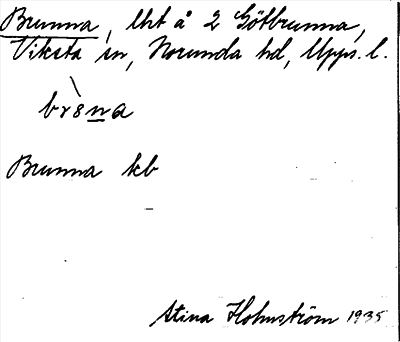 Brunna, lht å 2 Götbrunna,
Viksta sn, Norunda hd, Upps. l.
Brunna kb
Stina Holmström 1935